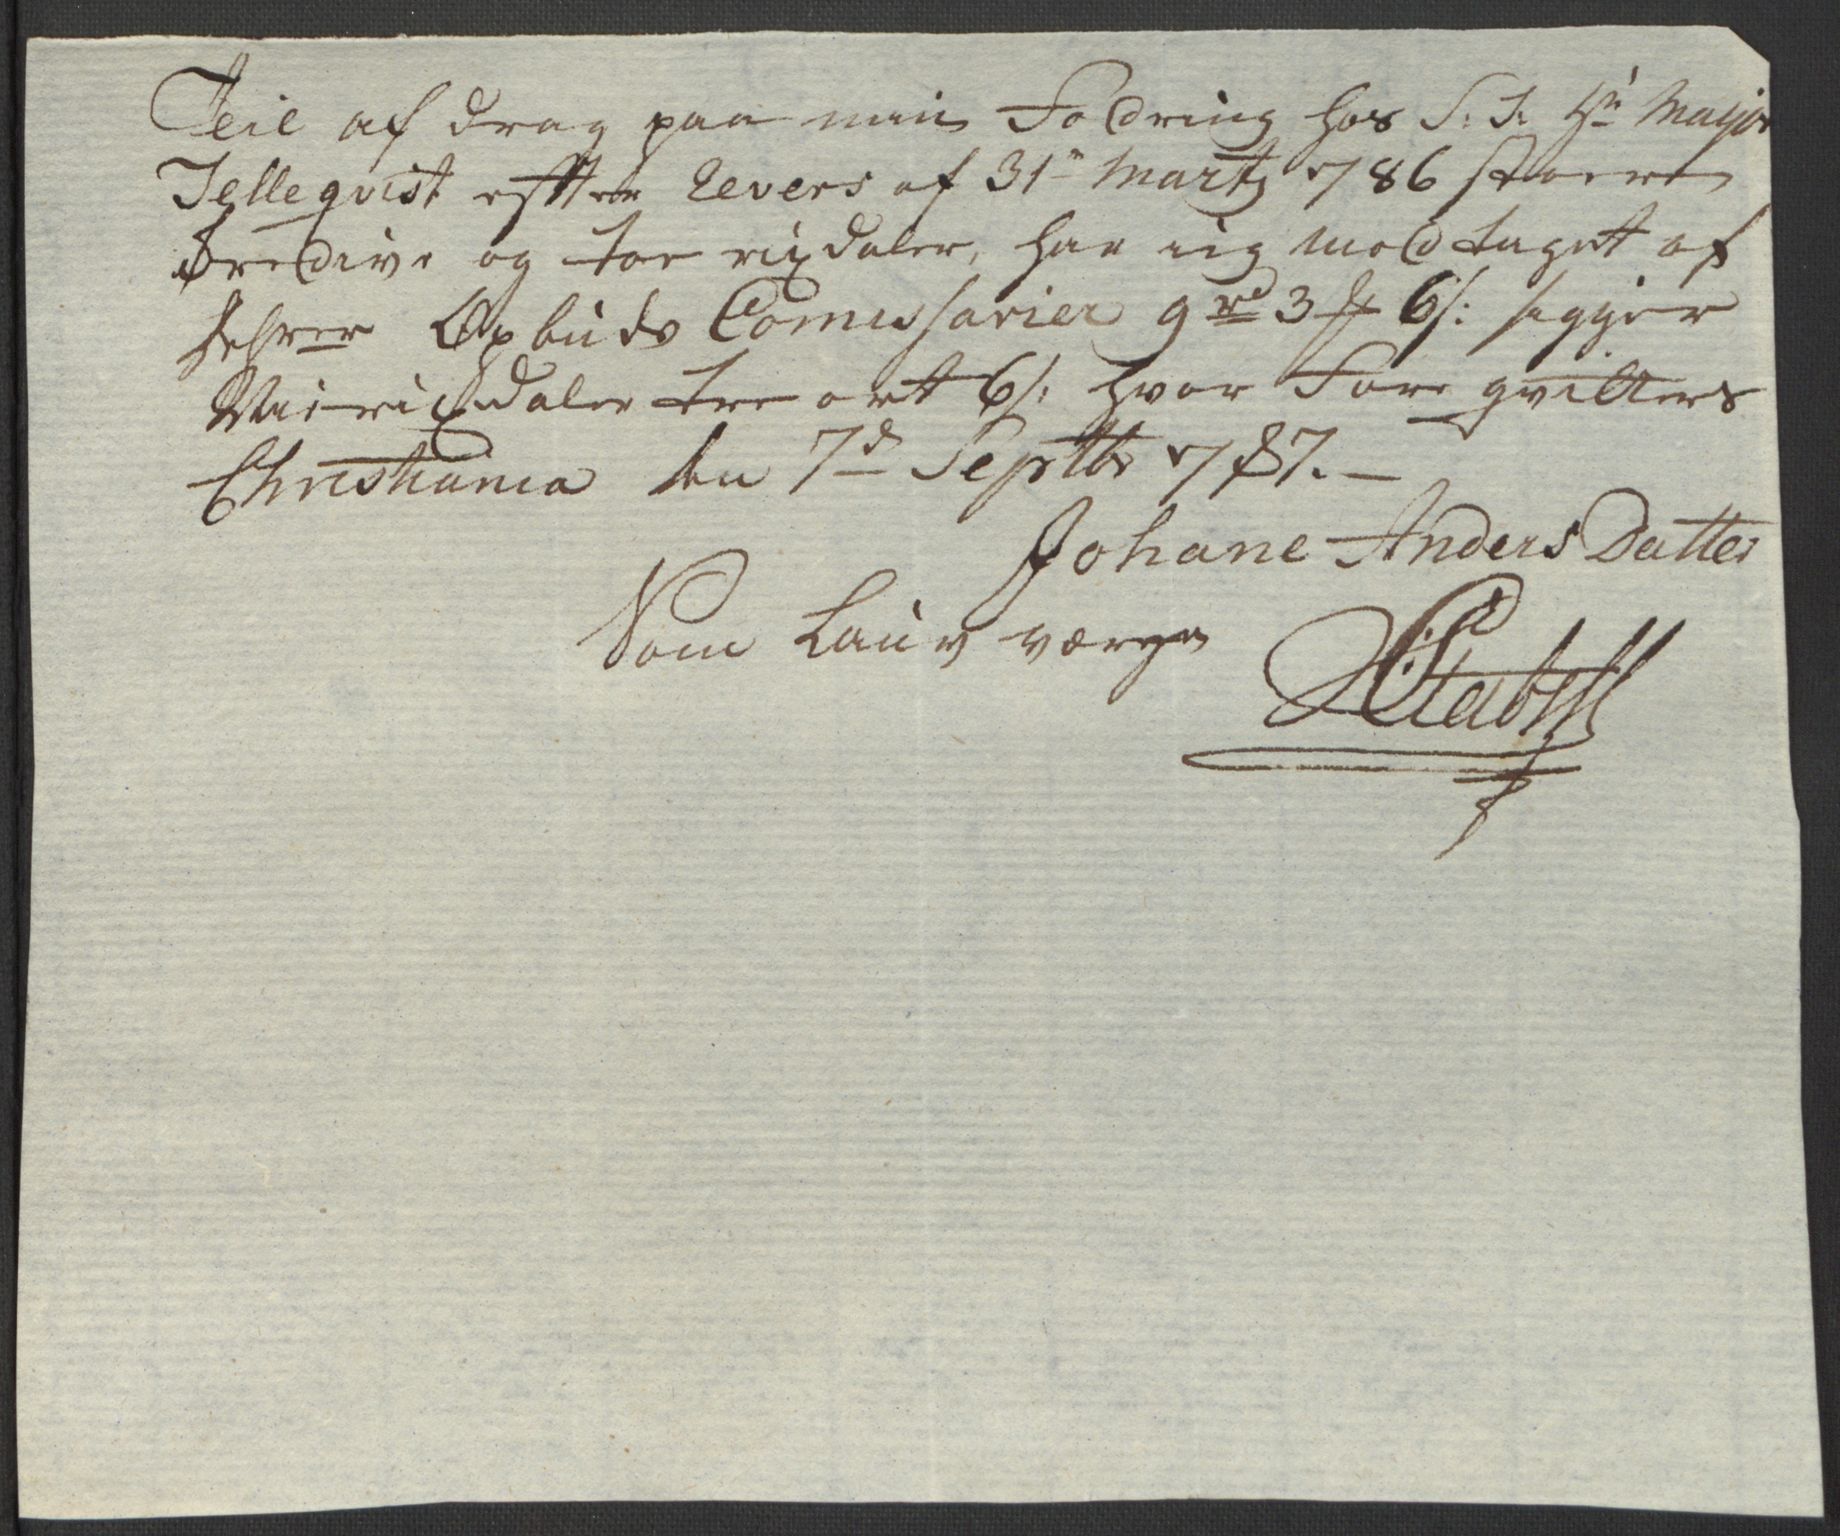 Teil af drag paa min Fordring hos S: T: Hr Major
Telleqvist efter Revers af 31te Martz 1786 stoer
Tredive og toe rixdaler, har iig modtaget af
Hehrer Opbuds Comissarier 9 rd 3 ort 6 s: sigger
Nie rixdaler tre ort 6 s: hvor Fore qvitters
Christiania den 7d Septbr 1787.—
Johane Anders Datter
Som Lauv værge